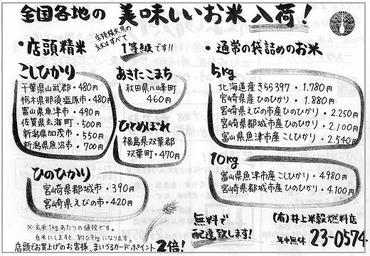 全国各地の 美味しいお米 入荷!
・店頭精米
店頭精米の
玄米はすべて
1等級です!!
こしひかり
千葉県山武郡・480円
栃木県那須塩原市・480円
富山県魚津市・490円
佐賀県玄海町・500円
新潟県加茂市・550円
新潟県魚沼市・700円
あきたこまち
秋田県八峰町
460円
ひとめぼれ
福島県双葉郡
双葉町・470円
ひのひかり
宮崎県都城市・390円
宮崎県えびの市・420円
※玄米1kgあたりの値段です。
白米にしますと、約0.9kgになります。
店頭でお買上げのお客様、まいづるカードポイント2倍!
・通常の袋詰めのお米
5kg
北海道産きらら397・1.780円
宮崎県産ひのひかり・1.880円
宮崎県えびの市産ひのひかり・2.250円
宮崎県都城市産ひのひかり・2.100円
富山県魚津市産こしひかり・2.540円
10kg
富山県魚津市産こしひかり・4.980円
宮崎県都城市産ひのひかり・4.100円
無料で
配達致します!
(有)井上米穀燃料店
年中無休 23-0574